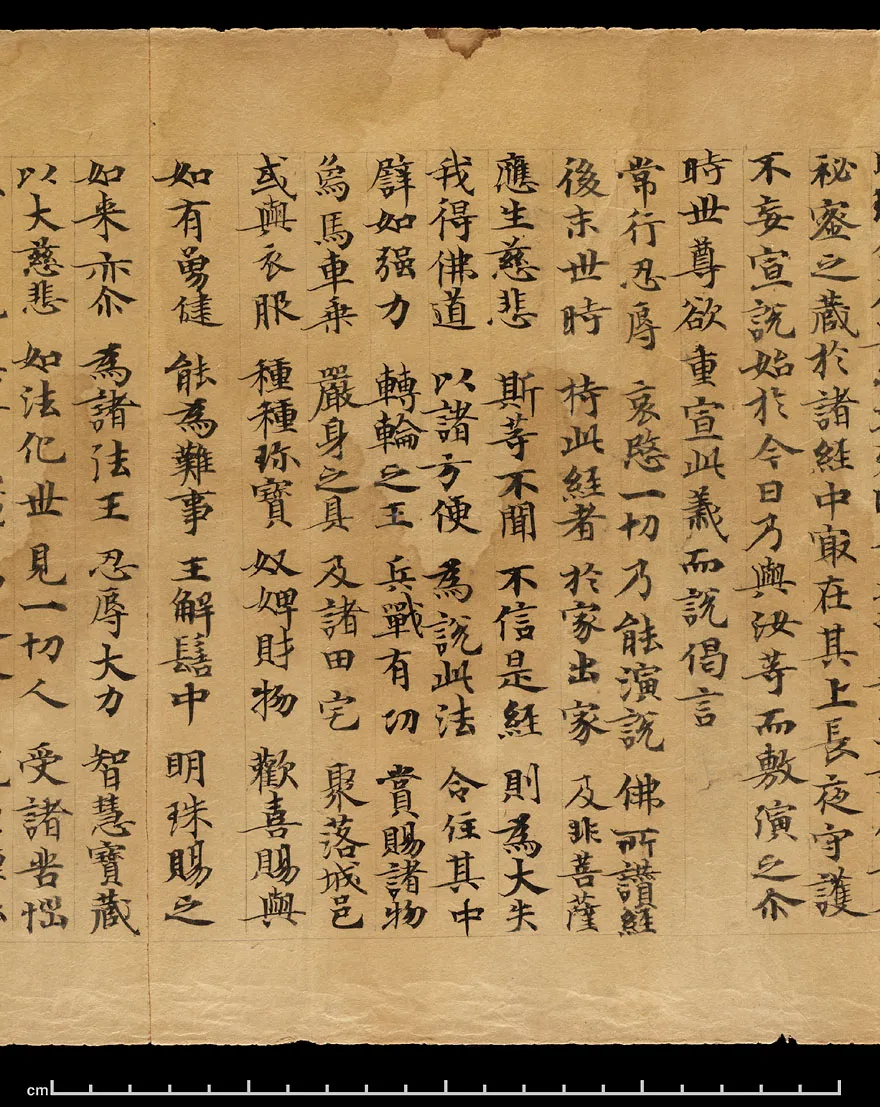 秘密之藏於諸経中㝡在其上長夜守護
不妄宣説始於今日乃與汝等而敷演之尒
時世尊欲重宣此義而説偈言
常行忍辱 哀愍一切 乃能演説 佛所讃経
後末世時 持此経者 於家出家 及非菩薩
應生慈悲 斯等不聞 不信是経 則為大失
我得佛道 以諸方便 為説此法 令住其中
譬如强力 轉輪之王 兵戰有功 賞賜諸物
象馬車乗 嚴身之具 及諸田宅 聚落城邑
或與衣服 種種珎寶 奴婢財物 歡喜賜與
如有勇健 能為難事 王解髻中 明珠賜之
如来亦尒 為諸法王 忍辱大力 智慧寶藏
以大慈悲 如法化世 見一切人 受諸苦惱
cm